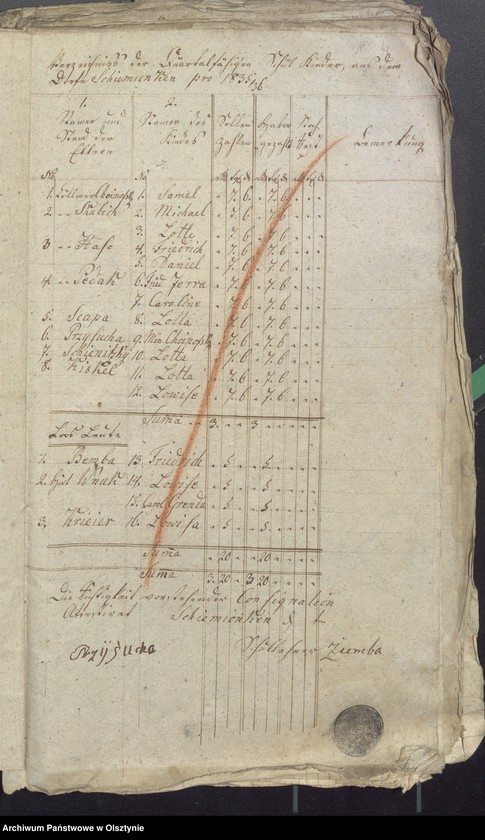 Verzeichniß der Quartalsfähigen Schul Kinder, aus dem
Dorfe Schiemienken pro 1835/36
1. 2.
Namen und Namen des Sollen Haben
Stand der Kindes Zahlen gezahlt Rest Bemerkung
Eltern
No No
1. Choinofsky 1. Samel 7. 6 7. 6
2 2. Michael 7. 6 7. 6
3. Lotte 7. 6 7. 6
3 4. Friedrich 7. 6 7. 6
5. Daniel 7. 6 7. 6
4. Pedak 6. 7. 6 7. 6
7. Caroline 7. 6 7. 6
5. Scapa 8. Lotta 7. 6 7. 6
6. Przysucha 9. Choinofsky 7. 6 7. 6
7. 10. Lotta 7. 6 7. 6
8. Kiskel 11. Lotta 7. 6 7. 6
12. Lowise 7. 6 7. 6
Suma 3. 3
Los Leute
1. Bemba 13. Friedrich 5 5
2. Wnuk 14. Lowise 5 5
15. 5 5
3. Krieier 16. Lowisa 5 5
Suma 20 20
Suma 3 20 3 20
Die Richtigkeit vorstehender Consignation
Atestiret Schiemionken d
Przysucha Schullehrer Ziemba
Archiwum Państwowe w Olsztynie